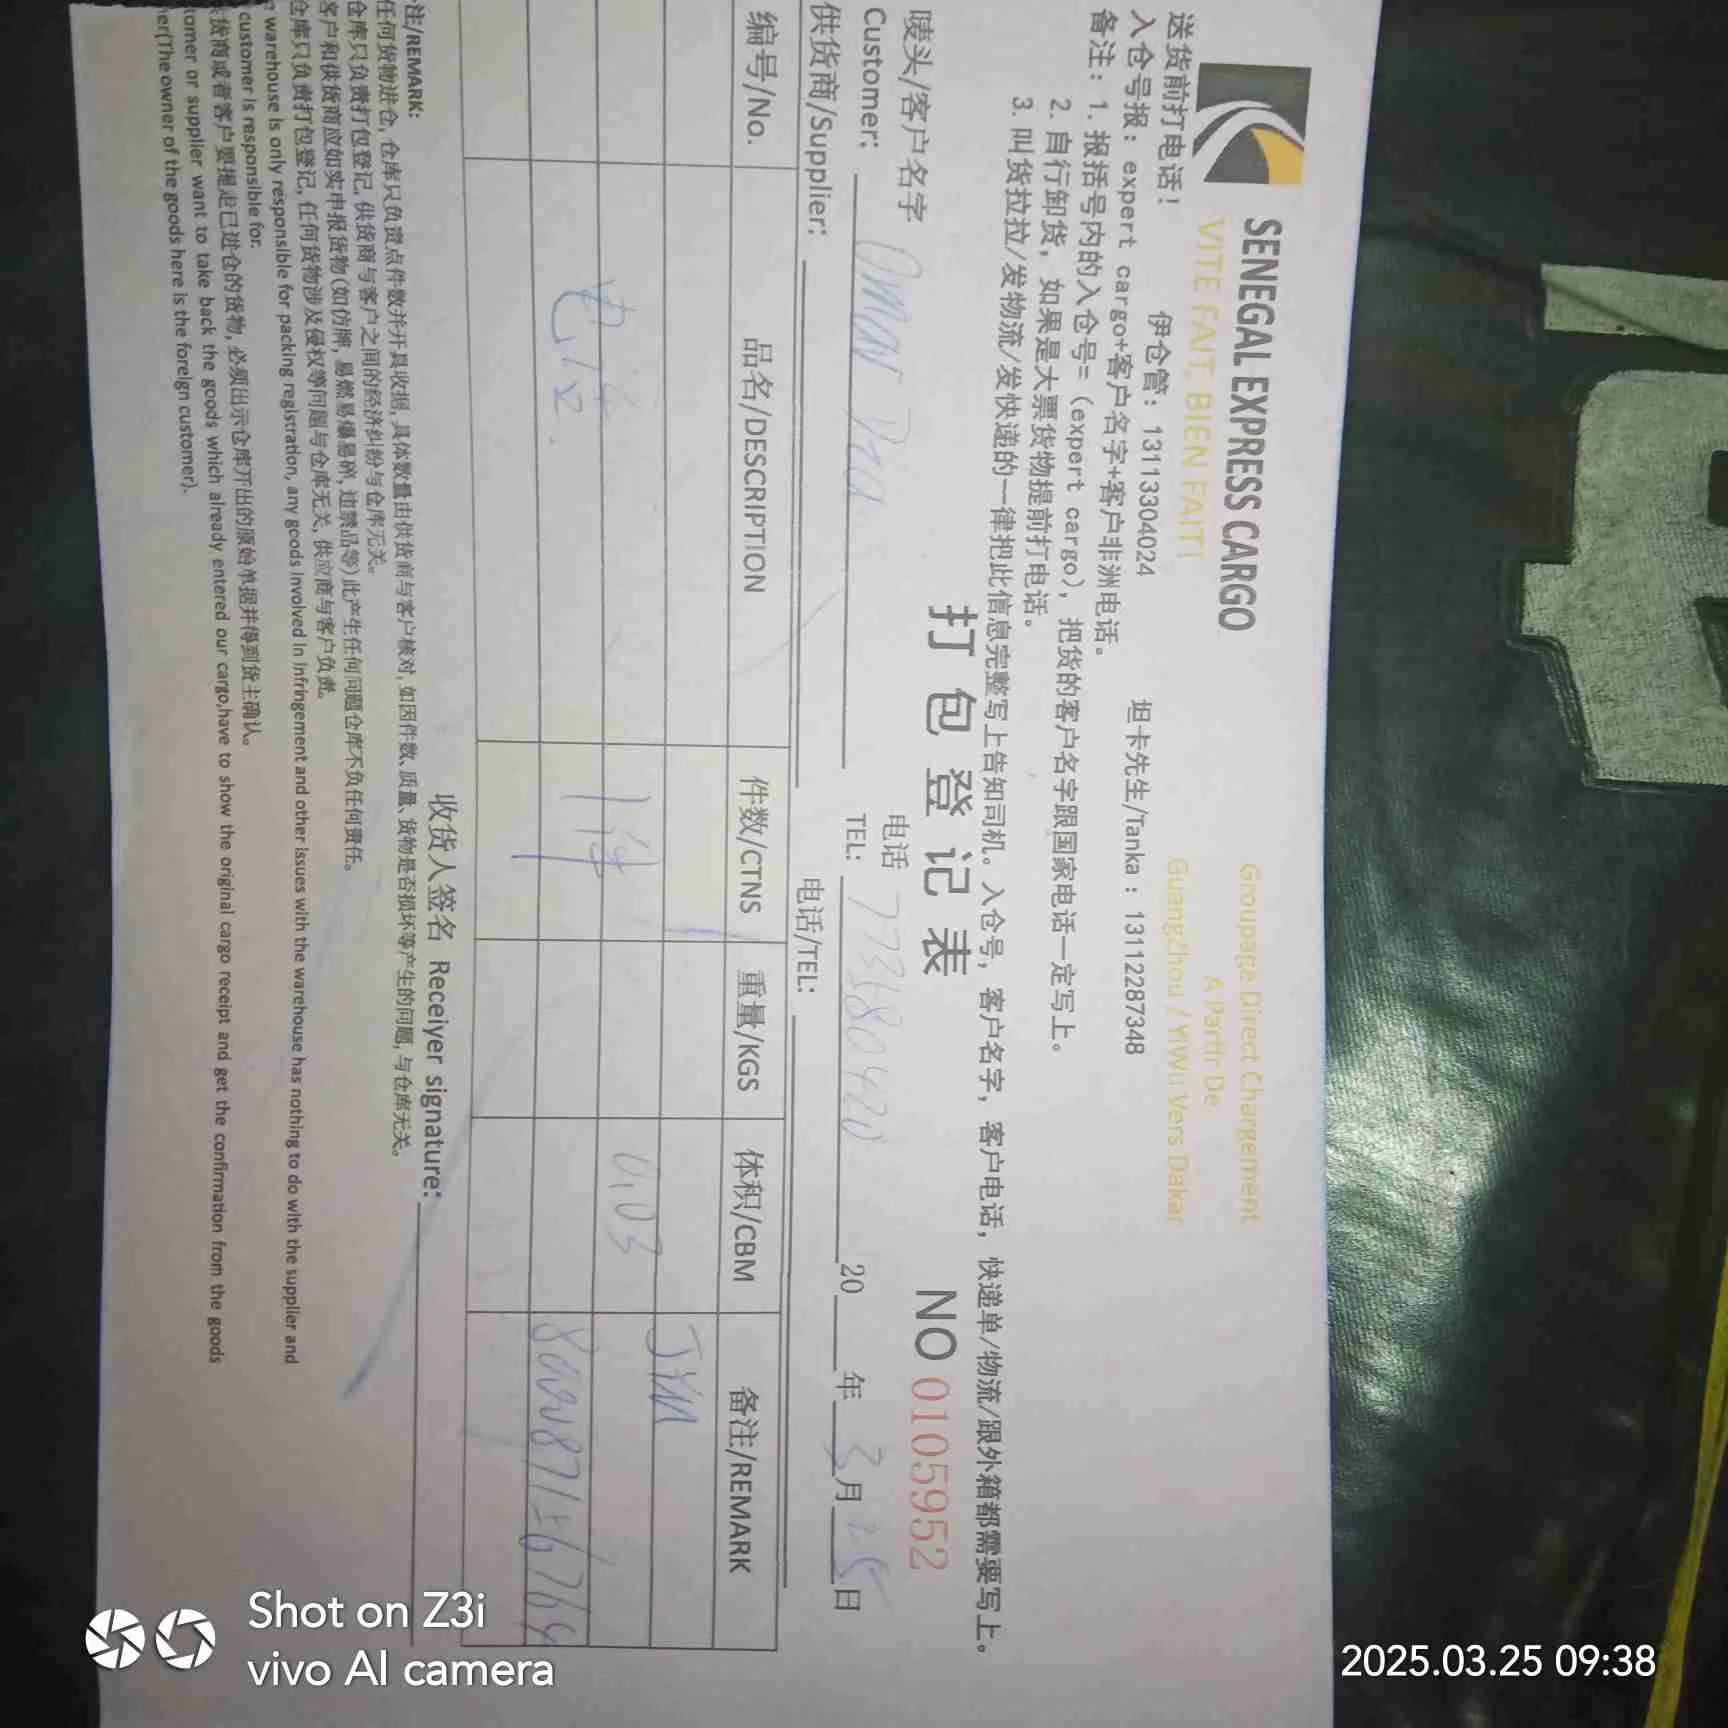 2025.03.25 09:38
SENEGAL EXPRESS CARGO
VITE FAIT, BIEN FAIT!
Groupage Direct Chargement
A Partir De
Guangzhou / YiWu Vers Dakar
送货前打电话!
伊仓管: 13113304024
坦卡先生/Tanka : 13112287348
入仓号报: expert cargo+客户名字+客户非洲电话。
备注: 1. 报括号内的入仓号=（expert cargo), 把货的客户名字跟国家电话一定写上。
2. 自行卸货, 如果是大票货物提前打电话。
3. 叫货拉拉/发物流/发快递的一律把此信息完整写上告知司机。入仓号, 客户名字, 客户电话, 快递单/物流/跟外箱都需要写上。
打包登记表
NO 0105952
唛头/客户名字
Customer: Omar Dia
电话
TEL: 773580420
20 年 3 月 25 日
供货商/Supplier:
电话/TEL:
编号/No. 品名/DESCRIPTION 件数/CTNS 重量/KGS 体积/CBM 备注/REMARK
JYM
电话 1件 0.03
收货人签名 Receiyer signature:
注/REMARK:
任何货物进仓, 仓库只负责点件数并开具收据, 具体数量由供货商与客户核对, 如因件数、质量、货物是否损坏等产生的问题, 与仓库无关。
仓库只负责打包登记, 供货商与客户之间的经济纠纷与仓库无关。
客户和供货商应如实申报货物(如仿牌, 易燃易爆易碎, 违禁品等)此产生任何问题仓库不负任何责任。
仓库只负责打包登记, 任何货物涉及侵权等问题与仓库无关, 供应商与客户负责。
warehouse is only responsible for packing registration, any goods involved in infringement and other issues with the warehouse has nothing to do with the supplier and
customer is responsible for.
货商或者客户要提走已进仓的货物, 必须出示仓库开出的原始单据并得到货主确认。
tomer or supplier want to take back the goods which already entered our cargo,have to show the original cargo receipt and get the confirmation from the goods
er(The owner of the goods here is the foreign customer).
Shot on Z3i
vivo AI camera